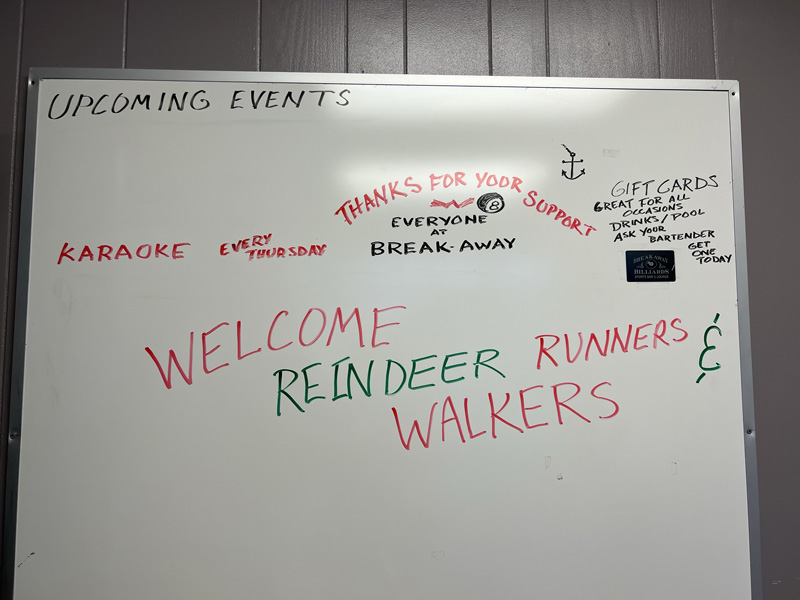 UPCOMING EVENTS
THANKS FOR YOUR SUPPORT
8
EVERYONE
AT
BREAK-AWAY
GIFT CARDS
GREAT FOR ALL
OCCASIONS
DRINKS/POOL
ASK YOUR
BARTENDER
GET
ONE
TODAY
BREAKAWAY
BILLIARDS
SPORTS BAR & LOUNGE
KARAOKE
EVERY
THURSDAY
WELCOME
REINDEER RUNNERS &
WALKERS